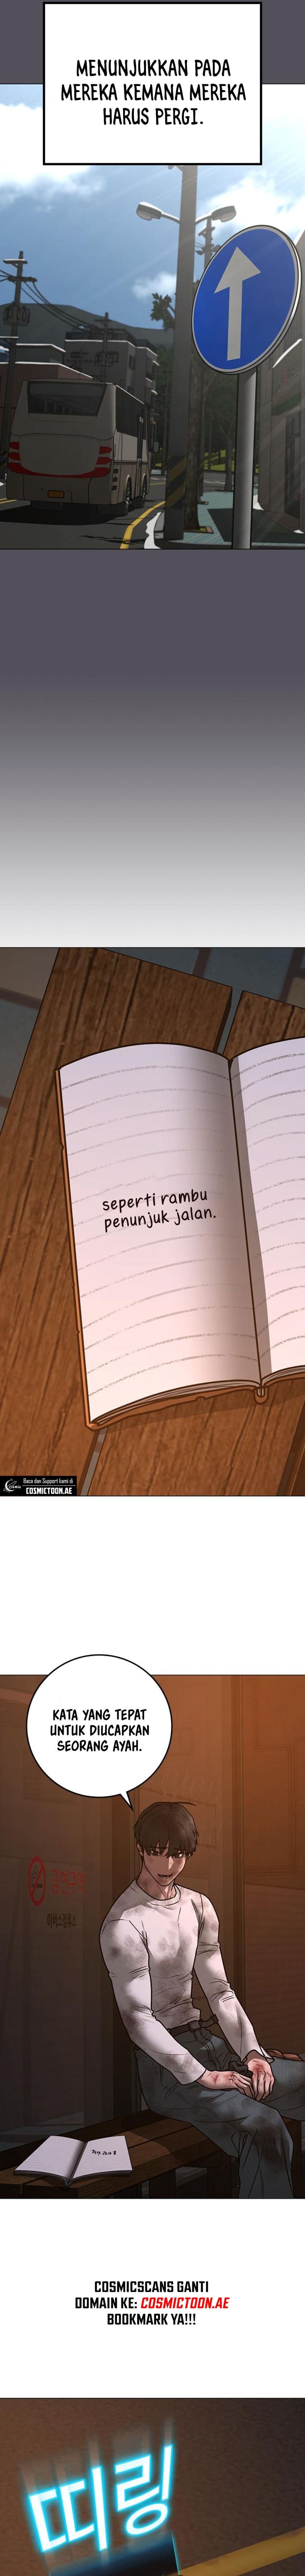 MENUNJUKKAN PADA
MEREKA KEMANA MEREKA
HARUS PERGI.
seperti rambu
penunjuk jalan.
Baca dan Support kami di
COSMICTOON.AE
KATA YANG TEPAT
UNTUK DIUCAPKAN
SEORANG AYAH.
COSMICSCANS GANTI
DOMAIN KE: COSMICTOON.AE
BOOKMARK YA!!!
띠링